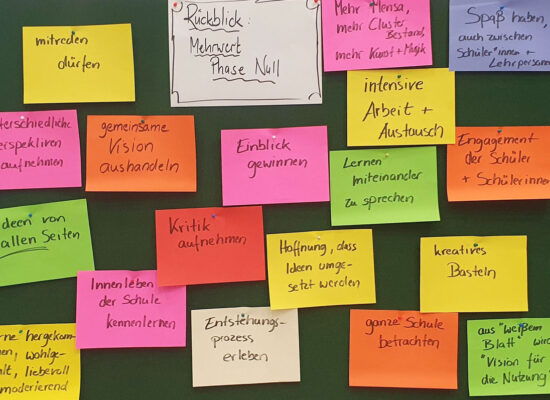 mitreden
dürfen
Rückblick:
Mehrwert
Phase Null
Mehr Mensa,
mehr Cluster,
Bestand,
mehr Kunst + Musik
Spaß haben,
auch zwischen
Schüler*innen +
Lehrpersonen
intensive
Arbeit +
Austausch
terschiedliche
erspektiven
aufnehmen
gemeinsame
Vision
aushandeln
Einblick
gewinnen
Lernen
miteinander
zu sprechen
Engagement
der Schüler
+ Schülerinnen
deen von
allen Seiten
Kritik
aufnehmen
Hoffnung, dass
Ideen umge-
setzt werden
kreatives
Basteln
Innenleben
der Schule
kennenlernen
Entstehungs-
prozess
erleben
ganze Schule
betrachten
aus "weißem
Blatt" wird
"Vision für
die Nutzung"
rne" hergekom-
en, wohlge-
lt, liebevoll
moderierend